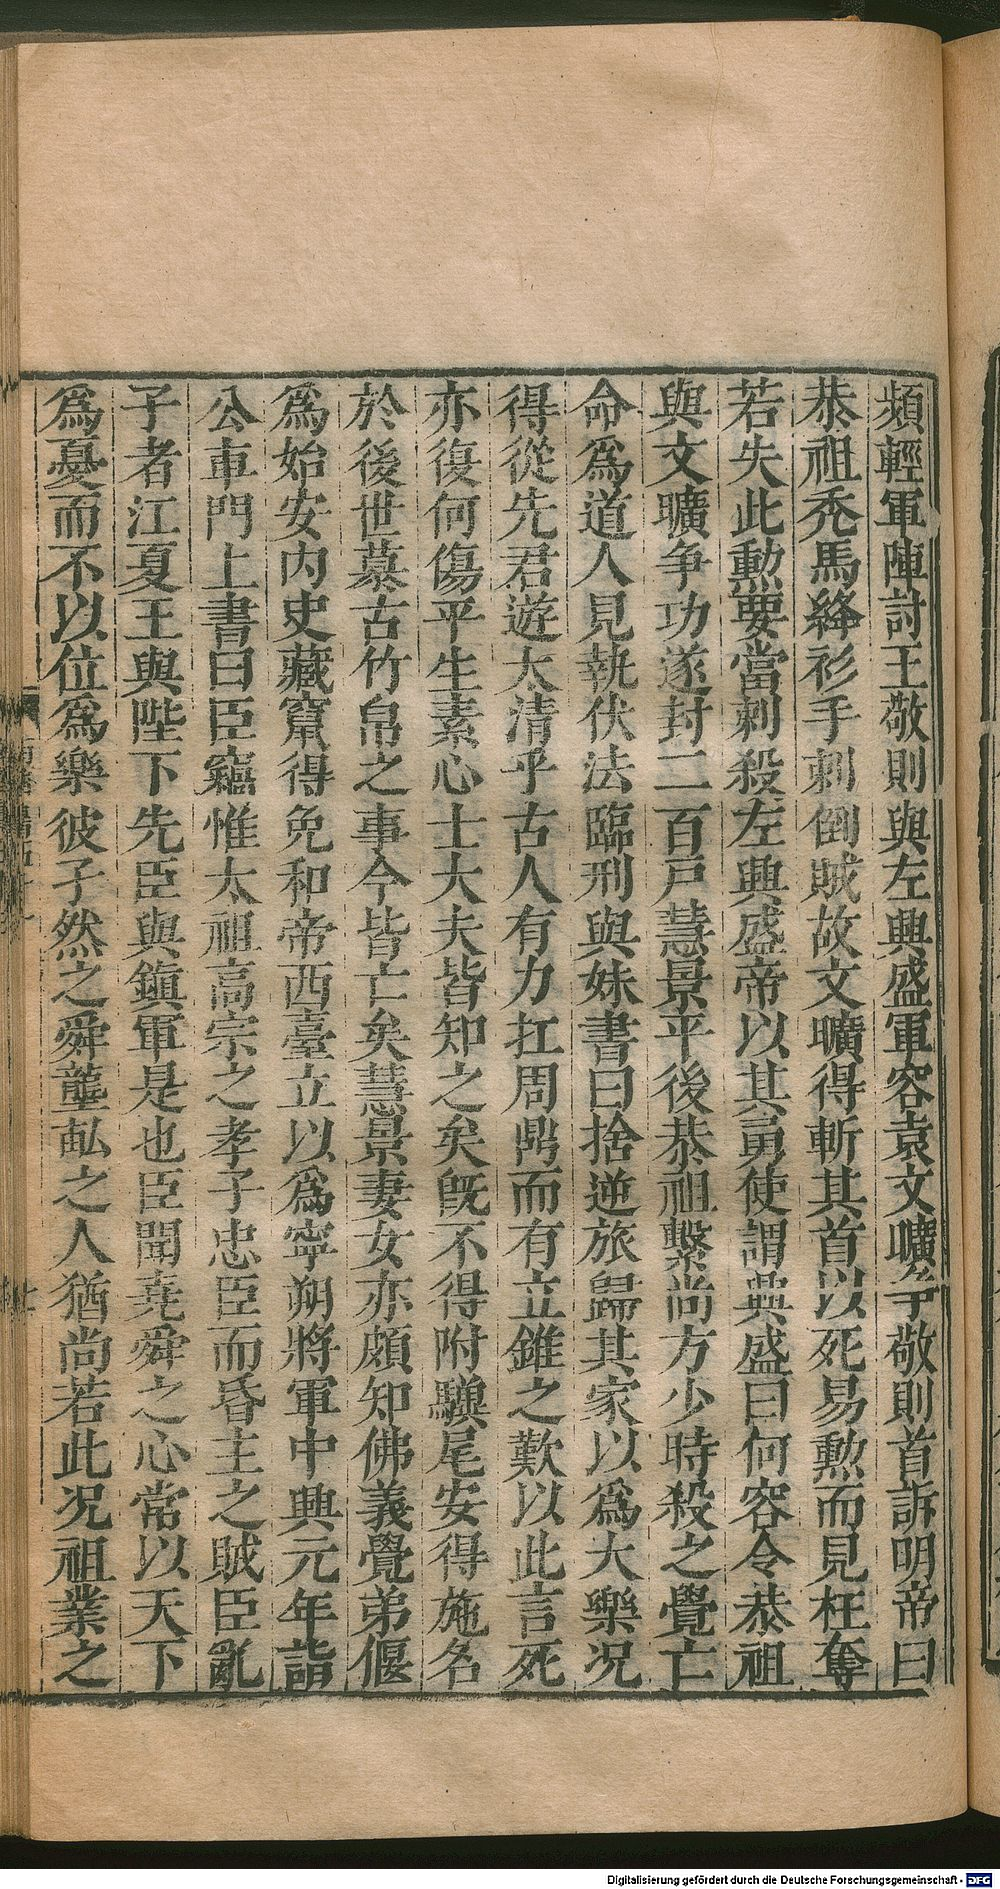 頻輕軍陣討王敬則與左興盛軍容袁文曠爭敬則首訴明帝曰
恭祖禿馬絳衫手刺倒賊故文曠得斬其首以死易勲而見枉奪
若失此勲要當刺殺左興盛帝以其勇使謂興盛曰何容令恭祖
與文曠爭功遂封二百戸慧景平後恭祖繫尚方少時殺之覺亡
命爲道人見執伏法臨刑與妹書曰捨逆旅歸其家以爲大樂况
得從先君遊太清乎古人有力扛周鼎而有立錐之歎以此言死
亦復何傷平生素心士大夫皆知之矣旣不得附驥尾安得施名
於後世慕古竹帛之事今皆亡矣慧景妻女亦頗知佛義覺弟偃
爲始安内史藏竄得免和帝西臺立以爲寧朔將軍中興元年詣
公車門上書曰臣竊惟太祖高宗之孝子忠臣而昏主之賊臣亂
子者江夏王與陛下先臣與鎭軍是也臣聞堯舜之心常以天下
爲憂而不以位爲樂彼孑然之舜壟畝之人猶尚若此况祖業之
Digitalisierung gefördert durch die Deutsche Forschungsgemeinschaft - DFG